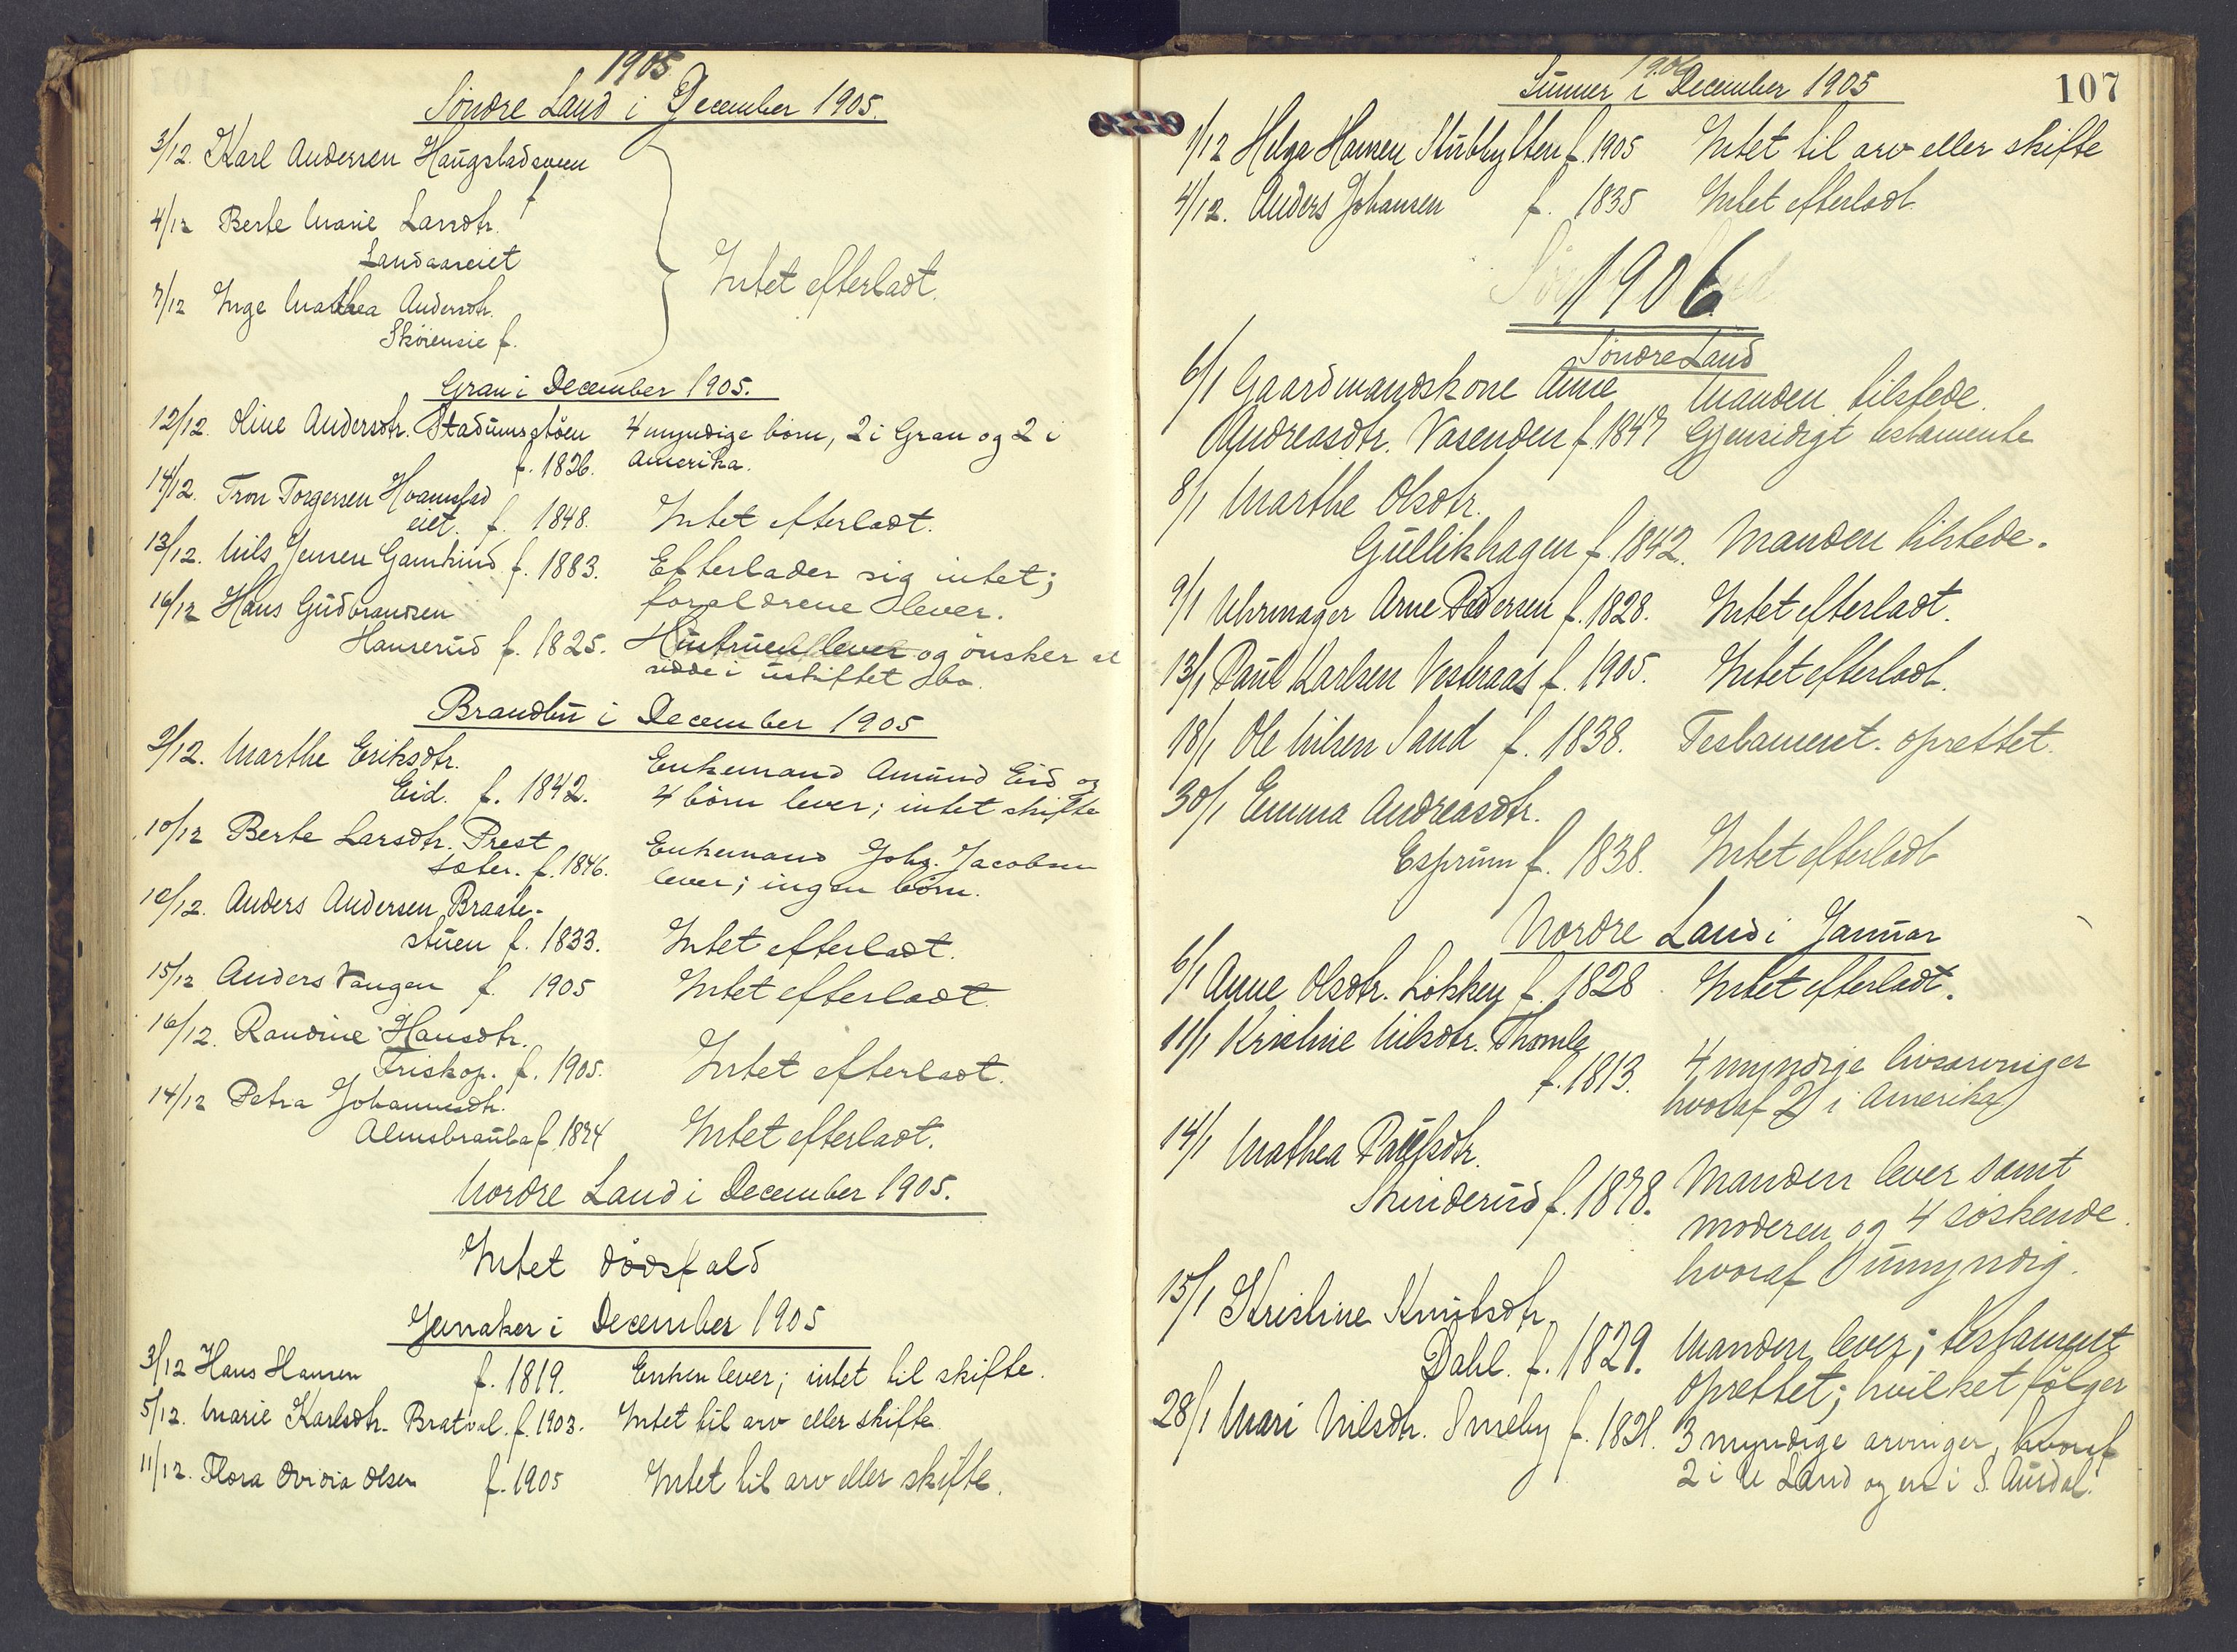 1905
Søndre Land i December 1905.
3/12. Karl Andersen Haugsladsveen
f
4/12 Berte Marie Larsdtr.
Landaaseiet
7/12 Inge Mathea Andersdtr.
f.
Intet efterladt.
Gran i December 1905.
12/12. Oline Andersdtr. Stadumsstöen 4 myndige börn, 2 i Gran og 2 i
f. 1826. Amerika.
14/12. Tron Torgersen Hvamstad
eiet. f. 1848. Intet efterladt.
13/12. Nils Jensen f. 1883. Efterlader sig intet;
forældrene lever.
16/12 Hans Gudbrandsen
Hanserud f. 1825. Hustruen lever og önsker at
sidde i uskiftet bo.
Brandbu i December 1905
9/12. Marthe Eriksdtr. Enkemand Amund Eid og
Eid. f. 1842. 4 börn lever; intet skifte
10/12 Berte Larsdtr. Prest Enkemand Johs. Jacobsen
sæter. f. 1846. lever; ingen börn.
10/12. Anders Andersen Braate-
stuen f. 1833. Intet efterladt.
15/12 Anders Vangen f. 1905 Intet efterladt.
16/12. Randine Hansdtr.
Friskop. f. 1905. Intet efterladt.
14/12 Petra Johannesdtr.
f. 1874 Intet efterladt.
Nordre Land i December 1905.
Intet dödsfald
Jevnaker i December 1905
3/12 Hans Hansen f. 1819. Enken lever; intet til skifte.
5/12. Marie Karlsdtr. Bratval. f. 1903. Intet til arv eller skifte.
11/12. Flora Ovidia Olsen f. 1905 Intet til arv eller skifte.
107
1906
Lunner i December 1905
1/12 Helga Hansen Stubhytten f. 1905 Intet til arv eller skifte
4/12. Anders Johansen f. 1835 Intet efterladt
1906
Søndre Land
6/1 Gaardmandskone Anne Manden tilstede.
Andreasdtr. Vasenden f. 1847 Gjensidigt testamente
8/1 Marthe Olsdtr.
Gullikhagen f. 1842. Manden tilstede.
9/1 Uhrmager Arne Pedersen f. 1828. Intet efterladt.
13/1 Paul Karlsen Vesteraas f. 1905. Intet efterladt.
18/1 Ole Nilsen Sand f. 1838. Testament oprettet.
30/1 Emma Andreasdtr.
Esprum f. 1838. Intet efterladt
Nordre Land i Januar
6/1 Anne Olsdtr. Lökken f. 1828 Intet efterladt.
11/1 Kristine Nilsdtr. Thomle
f. 1813. 4 myndige livsarvinger
hvoraf 2 i Amerika
14/1 Mathea Paulsdtr.
Skinderud f. 1878. Manden lever samt
moderen og 4 söskende
hvoraf 1 umyndig.
15/1 Kristine Knutsdtr.
Dahl. f. 1829. Manden lever; testament
oprettet; hvilket fölger
28/1 Mari Nilsdtr. Smeby f. 1821. 3 myndige arvinger, hvoraf
2 i N Land og en i S. Aurdal.